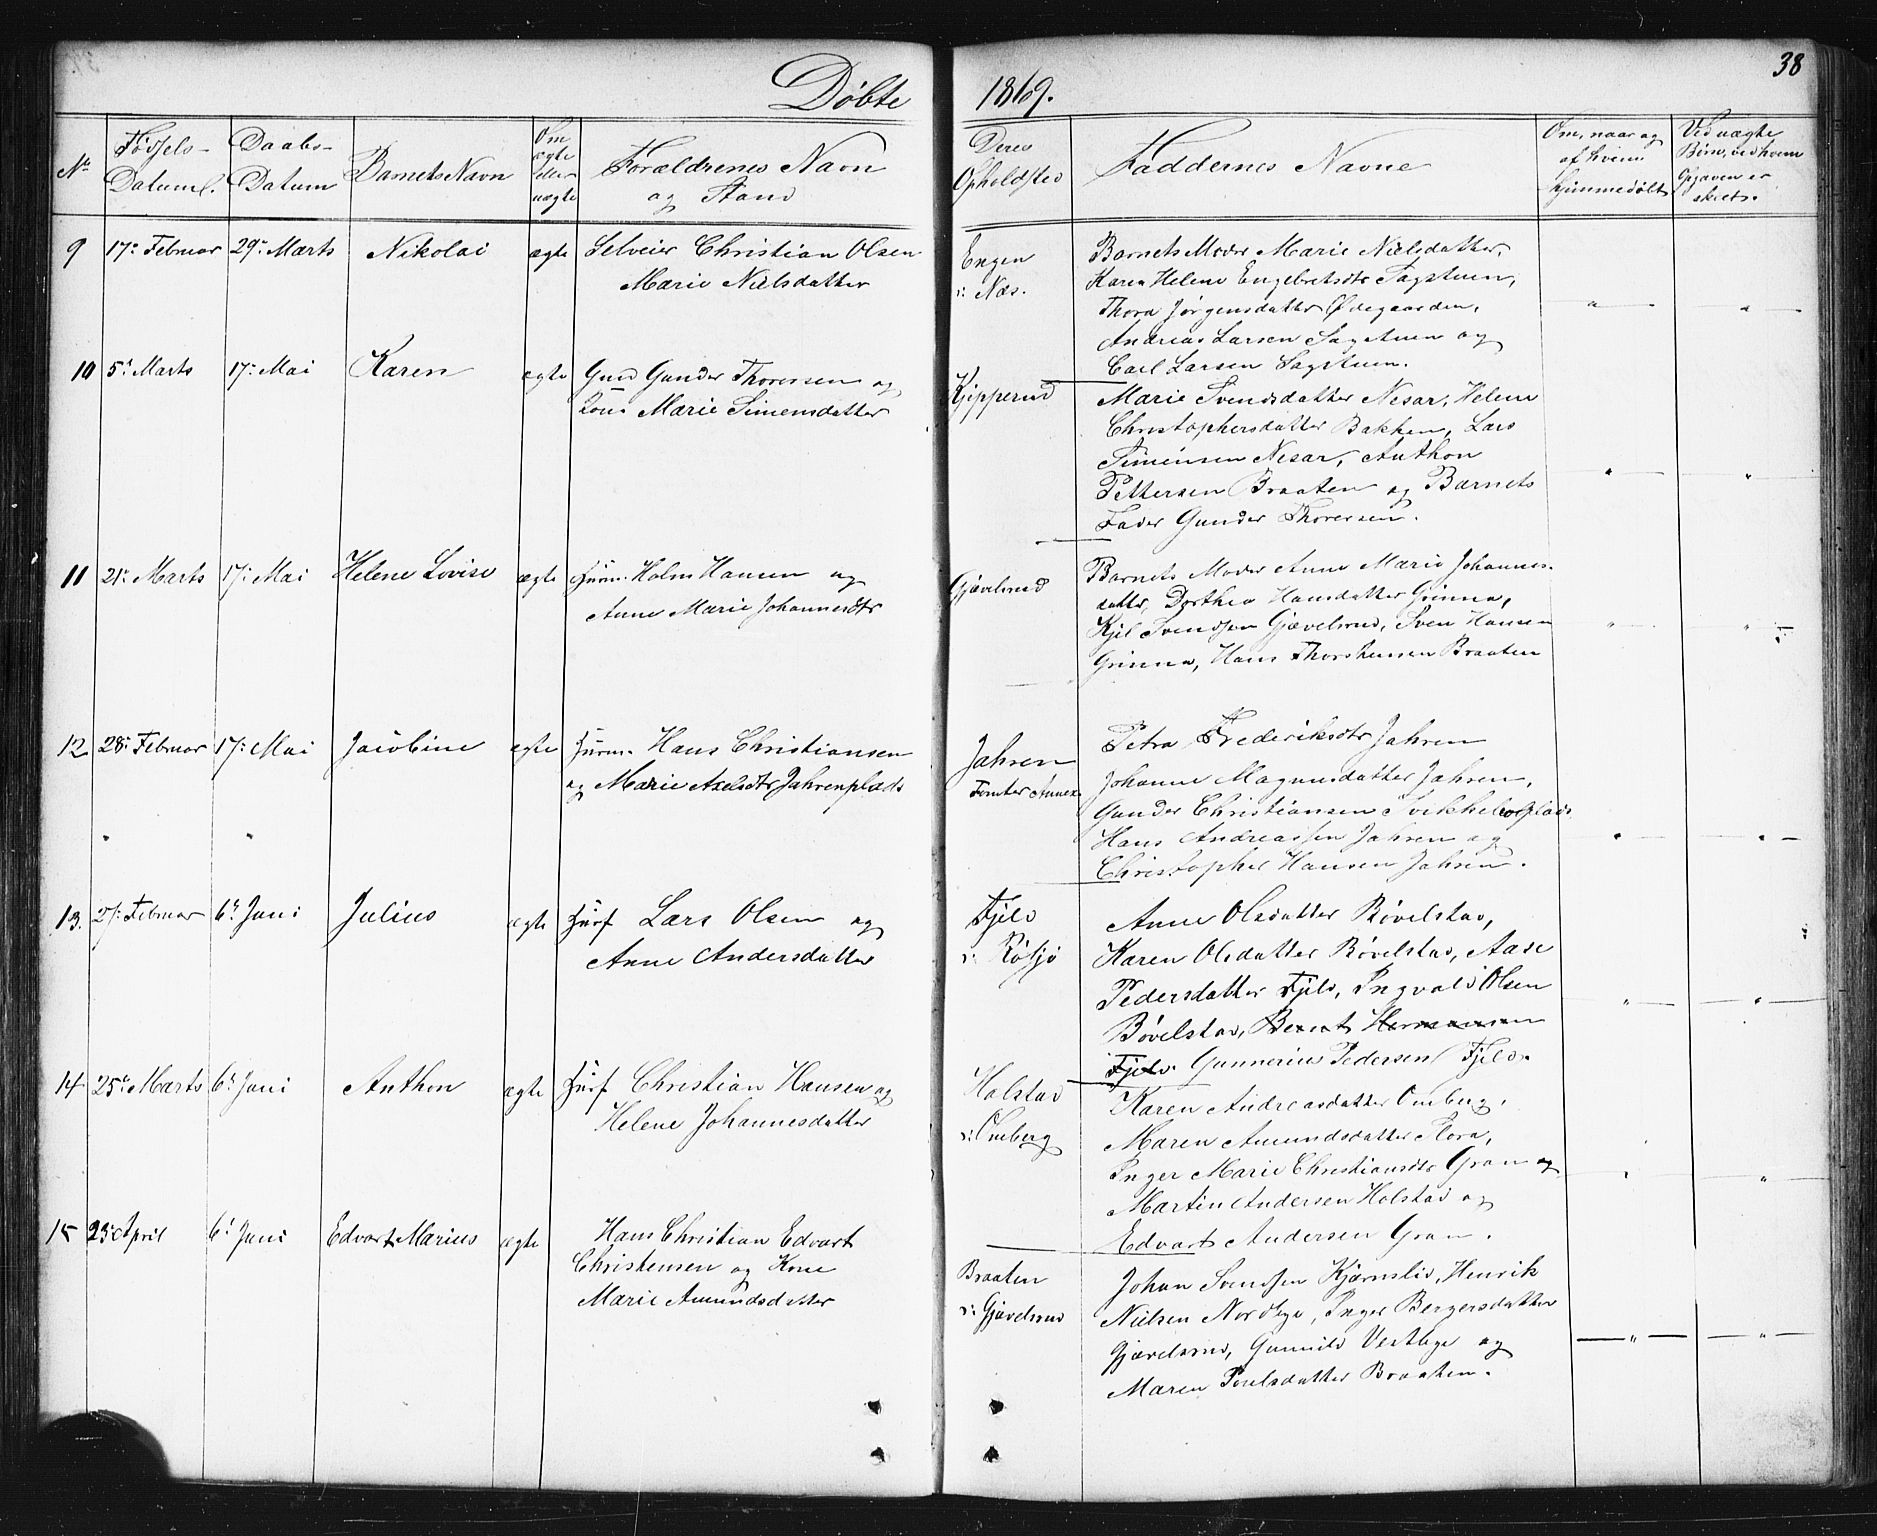 38
Døbte 1869.
No
Fødsels-
Datum.
Daabs-
Datum
Barnets Navn
Om
ægte
eller
uægte
Forældrenes Navn
og Stand
Deres
Opholdsted
Faddernes Navne
Om, naar og
af hvem
hjemmedøbt
Ved uægte
Børn, ved hvem
Opgaven er
skeet.
9 17de Februar 29de Marts Nikolai ægte Selveier Christian Olsen
Marie Nielsdatter
Engen
i Næs.
Barnets Moder Marie Nielsdatter,
Karen Helene Engebretsdtr Sagstuen,
Thora Jørgensdatter Ødegaarden,
Andreas Larsen Sagstuen og
Carl Larsen Sagstuen.
10 5te Marts 17de Mai Karen ægte Gmd Gunder Thoresen og
Marie Simensdatter
Kjipperud
Marie Svendsdatter Nesar, Helene
Christophersdatter Bakken, Lars
Simensen Nesar, Anthon
Pettersen Braaten og Barnets
Fader Gunder Thoresen.
11 21de Marts 17de Mai Helene Lovise ægte Huusm. Holm Hansen og
Anne Marie Johannesdtr
Gjævelsrud
Barnets Moder Anne Marie Johannes-
datter, Dorthea Hansdatter Grinna,
Kjel Svendsen Gjævelsrud, Sven Hansen
Grinna, Hans Thorstensen Braaten
12 28de Februar 17de Mai Jacobine ægte Huusm. Hans Christiansen
og Marie Axelsdtr Jahrenplads
Jahren
Tomter Annex
Petra Frederiksdtr Jahren
Johanne Magnusdatter Jahren,
Gunder Christiansen
Hans Andreassen Jahren og
Christopher Hansen Jahren.
13. 27de Februar 6te Juni Julius ægte Husf Lars Olsen og
Anne Andersdatter
Fjeld
i
Anne Olsdatter Bøvelstad,
Karen Olsdatter Bøvelstad, Aase
Pedersdatter Fjeld, Ingvald Olsen
Bøvelstad, Bernt Hermansen
Fjeld. Gunnerius Pedersen Fjeld.
14 25de Marts 6te Juni Anthon ægte Husf Christian Hansen og
Helene Johannesdatter
Holstad
i Omberg
Karen Andreasdatter Omberg,
Maren Amundsdatter Flora,
Inger Marie Christiansdtr Gran og
Martin Andersen Holstad og
Edvart Andersen Gran.
15 23de April 6te Juni Edvart Marius ægte Hans Christian Edvart
Christensen og Kone
Marie Amundsdatter
Braaten
i Gjævelsrud
Johan Svendsen Kjærnslid, Henrik
Nielsen Nordbye, Inger Bergersdatter
Gjævelsrud, Gunnild Vestbye og
Maren Poulsdatter Braaten.